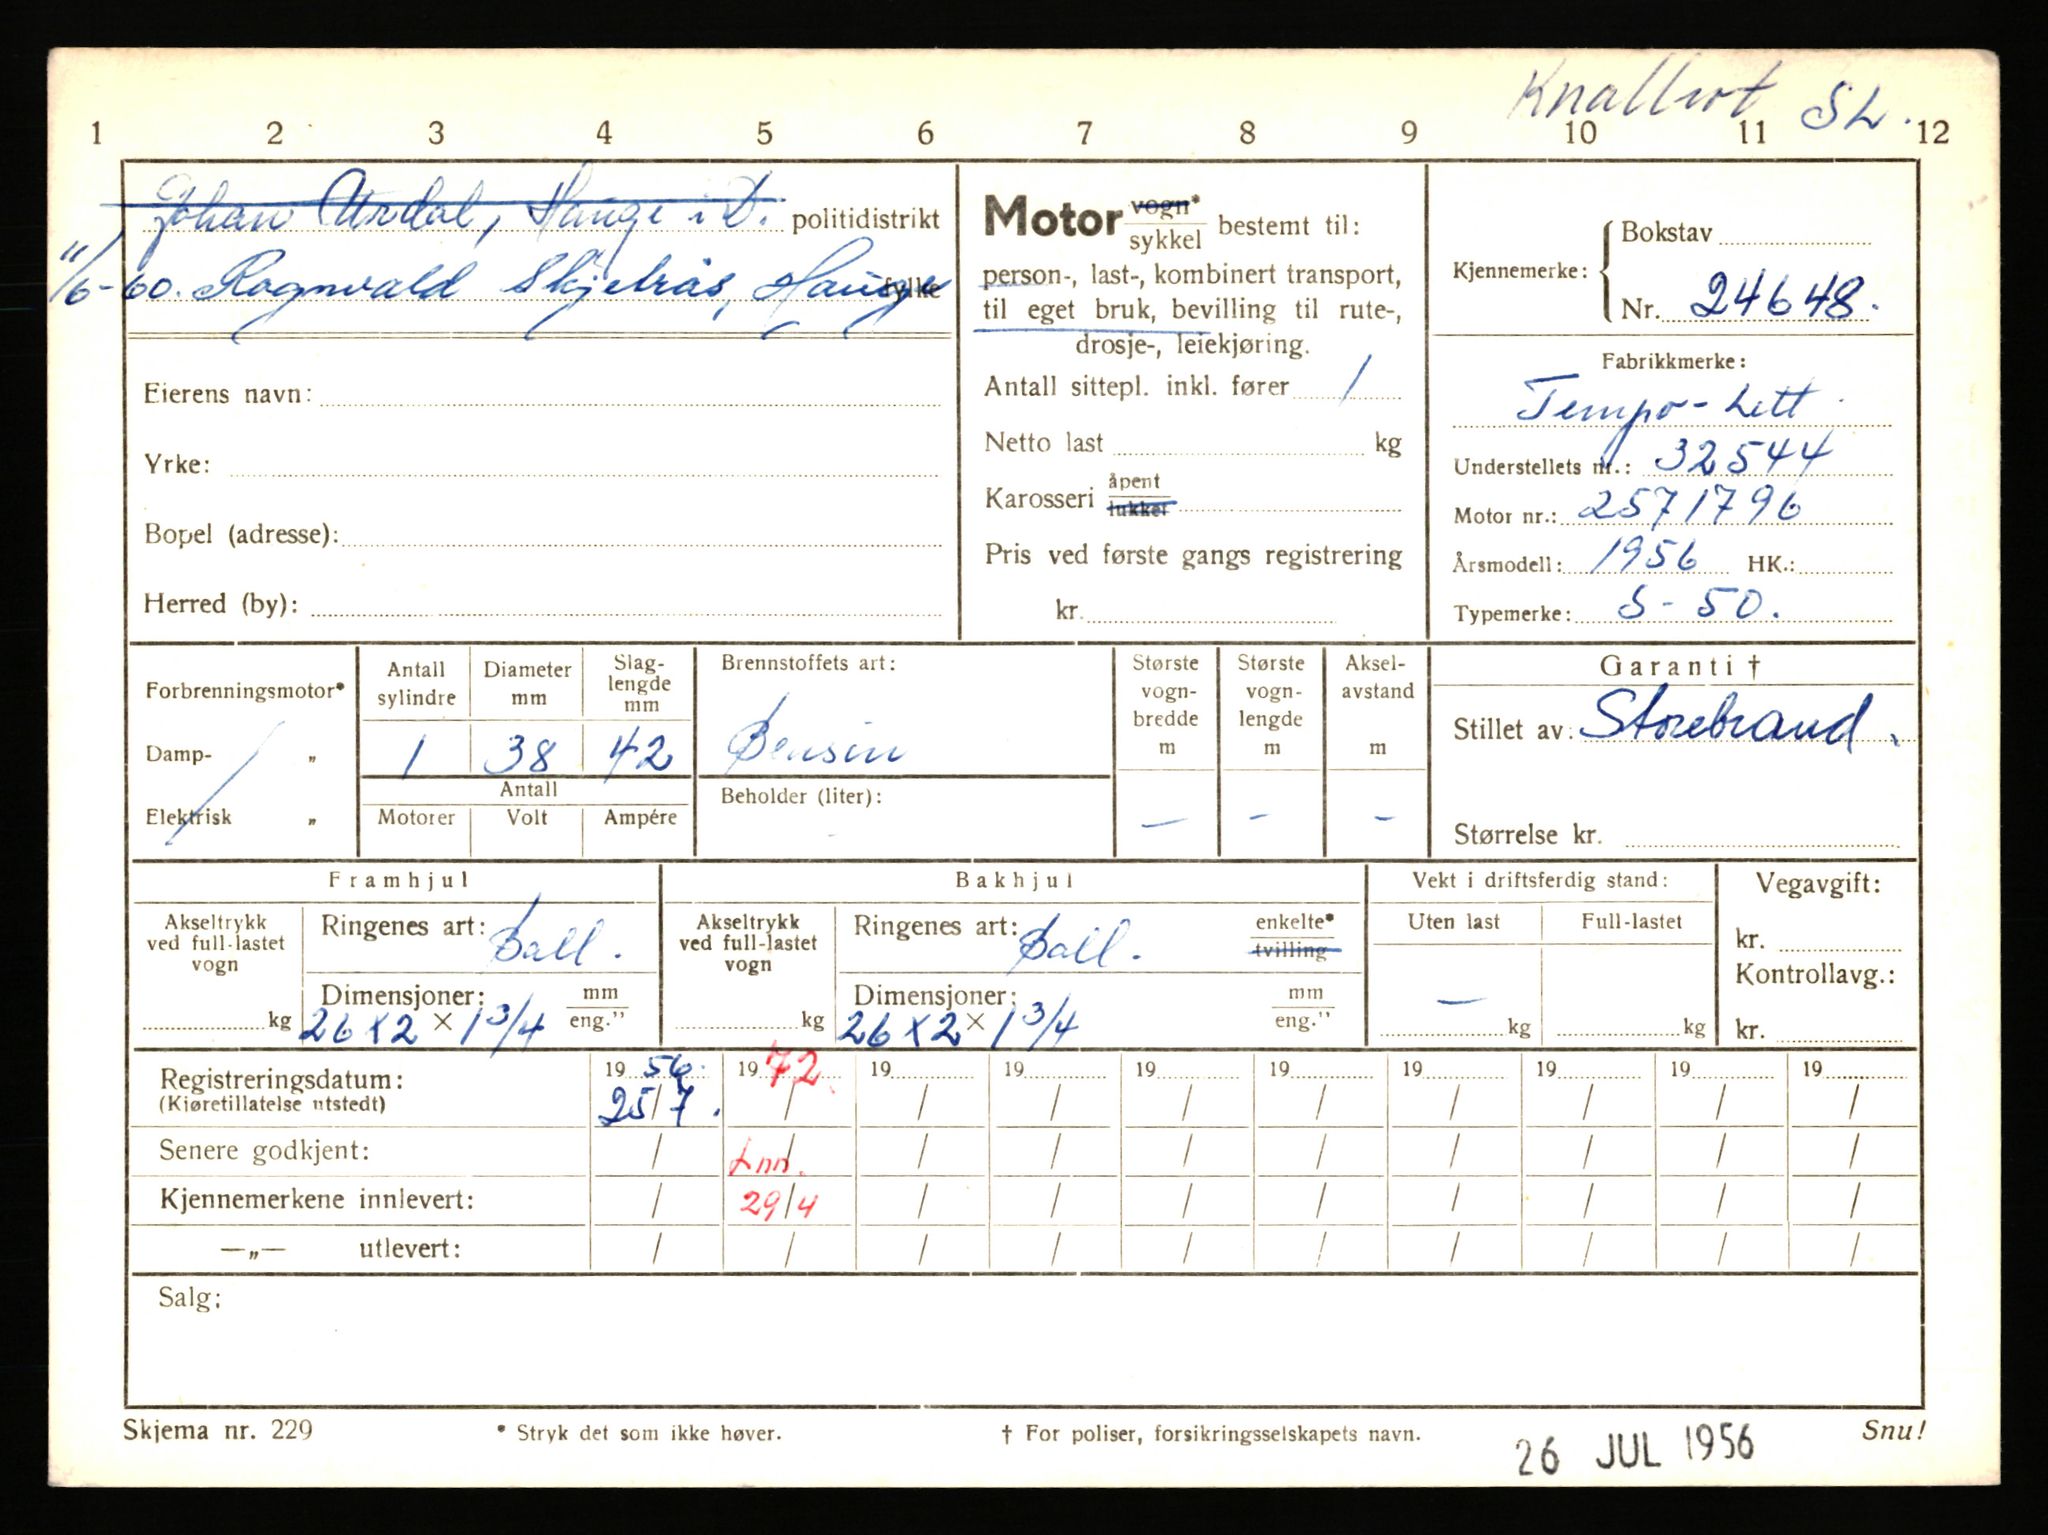 Knallert SL.
1 2 3 4 5 6 7 8 9 10 11 12
Johan Urdal, Hauge i D. politidistrikt
11/6-60. Ragnvald Skjelrås, Hauge fylke
Eierens navn:
Yrke:
Bopel (adresse):
Herred (by):
Motor vogn* sykkel bestemt til:
person-, last-, kombinert transport,
til eget bruk, bevilling til rute-,
drosje-, leiekjøring.
Antall sittepl. inkl. fører 1
Netto last kg
Karosseri åpent lukket
Pris ved første gangs registrering
kr.
Kjennemerke: Bokstav
Nr. 24648.
Fabrikkmerke:
Tempo-Lett
Understellets nr.: 32544
Motor nr.: 2571796
Årsmodell: 1956 HK.:
Typemerke: S-50.
Forbrenningsmotor*
Damp- „
Elektrisk „
Antall sylindre
Diameter mm
Slag-lengde mm
1 38 42
Antall
Motorer Volt Ampére
Brennstoffets art:
Bensin
Beholder (liter):
Største vogn-bredde m
Største vogn-lengde m
Aksel-avstand m
— - -
Garanti †
Stillet av: Storebrand.
Størrelse kr.
Framhjul
Akseltrykk ved full-lastet vogn
kg
Ringenes art: Ball.
Dimensjoner: mm eng."
26 x 2 × 1 3/4
Bakhjul
Akseltrykk ved full-lastet vogn
kg
Ringenes art: Ball. enkelte* tvilling
Dimensjoner: mm eng."
26 x 2 × 1 3/4
Vekt i driftsferdig stand:
Uten last Full-lastet
—
kg kg
Vegavgift:
kr.
Kontrollavg.:
kr.
Registreringsdatum: 19 56. 19 72. 19 19 19 19 19 19 19 19
(Kjøretillatelse utstedt) 25/7. / / / / / / / / /
Senere godkjent: / Inn. / / / / / / / /
Kjennemerkene innlevert: / 29/4 / / / / / / / /
—„— utlevert: / / / / / / / / / /
Salg:
Skjema nr. 229
* Stryk det som ikke høver.
† For poliser, forsikringsselskapets navn.
26 JUL 1956
Snu!